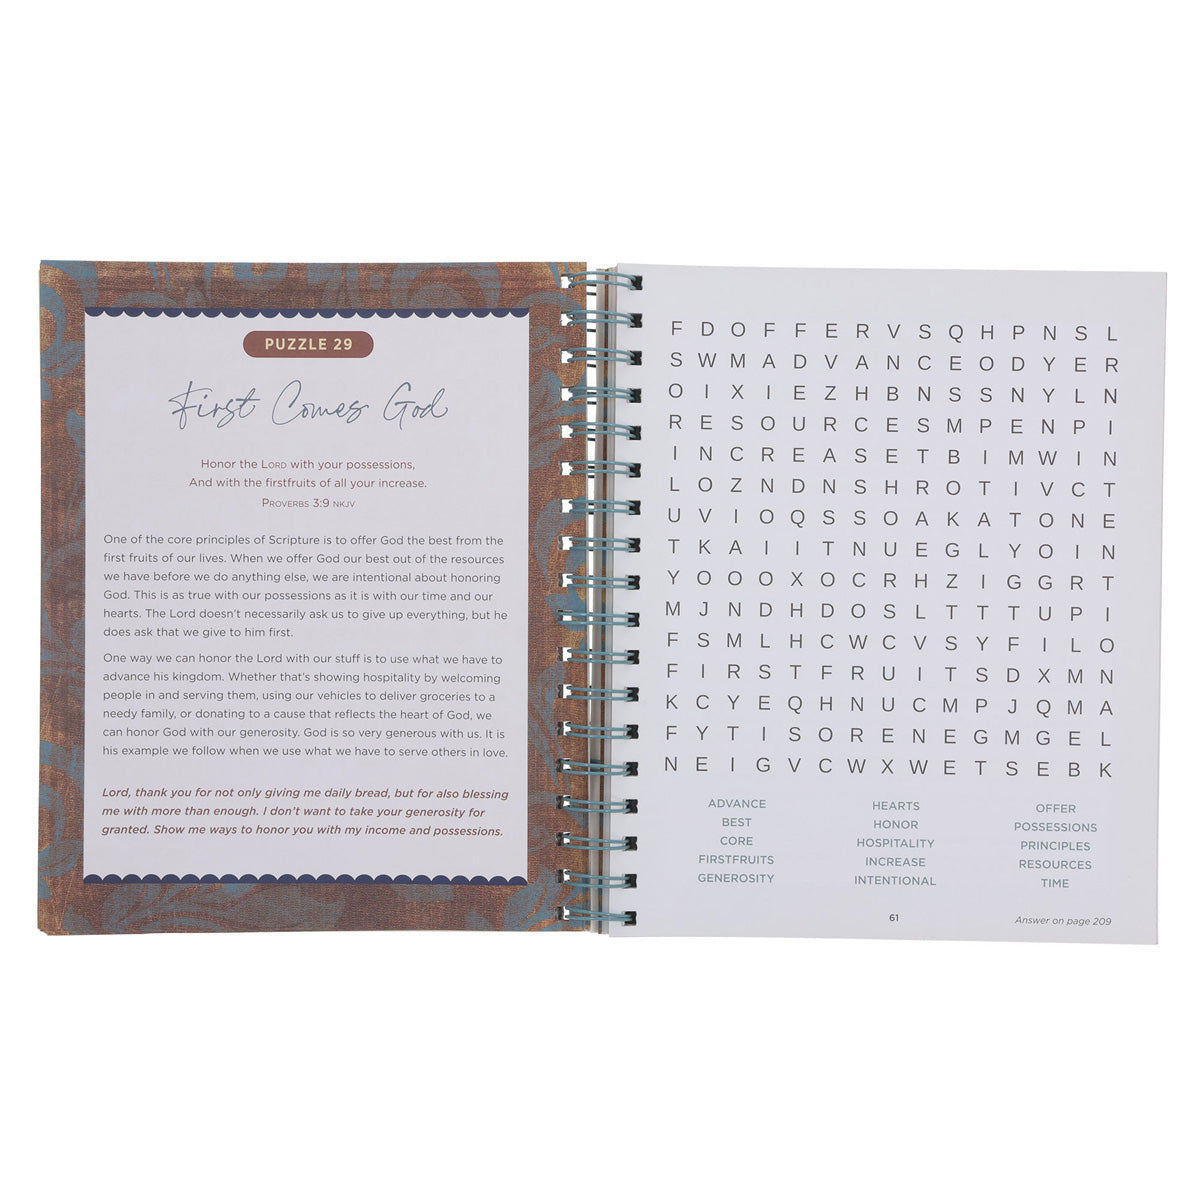 PUZZLE 29
First Comes God
Honor the LORD with your possessions,
And with the firstfruits of all your increase.
PROVERBS 3:9 NKJV
One of the core principles of Scripture is to offer God the best from the
first fruits of our lives. When we offer God our best out of the resources
we have before we do anything else, we are intentional about honoring
God. This is as true with our possessions as it is with our time and our
hearts. The Lord doesn't necessarily ask us to give up everything, but he
does ask that we give to him first.
One way we can honor the Lord with our stuff is to use what we have to
advance his kingdom. Whether that's showing hospitality by welcoming
people in and serving them, using our vehicles to deliver groceries to a
needy family, or donating to a cause that reflects the heart of God, we
can honor God with our generosity. God is so very generous with us. It is
his example we follow when we use what we have to serve others in love.
Lord, thank you for not only giving me daily bread, but for also blessing
me with more than enough. I don't want to take your generosity for
granted. Show me ways to honor you with my income and possessions.
F D O F F E R V S Q H P N S L
S W M A D V A N C E O D Y E R
O I X I E Z H B N S S N Y L N
R E S O U R C E S M P E N P I
I N C R E A S E T B I M W I N
L O Z N D N S H R O T I V C T
U V I O Q S S O A K A T O N E
T K A I I T N U E G L Y O I N
Y O O O X O C R H Z I G G R T
M J N D H D O S L T T T U P I
F S M L H C W C V S Y F I L O
F I R S T F R U I T S D X M N
K C Y E Q H N U C M P J Q M A
F Y T I S O R E N E G M G E L
N E I G V C W X W E T S E B K
ADVANCE HEARTS OFFER
BEST HONOR POSSESSIONS
CORE HOSPITALITY PRINCIPLES
FIRSTFRUITS INCREASE RESOURCES
GENEROSITY INTENTIONAL TIME
61 Answer on page 209